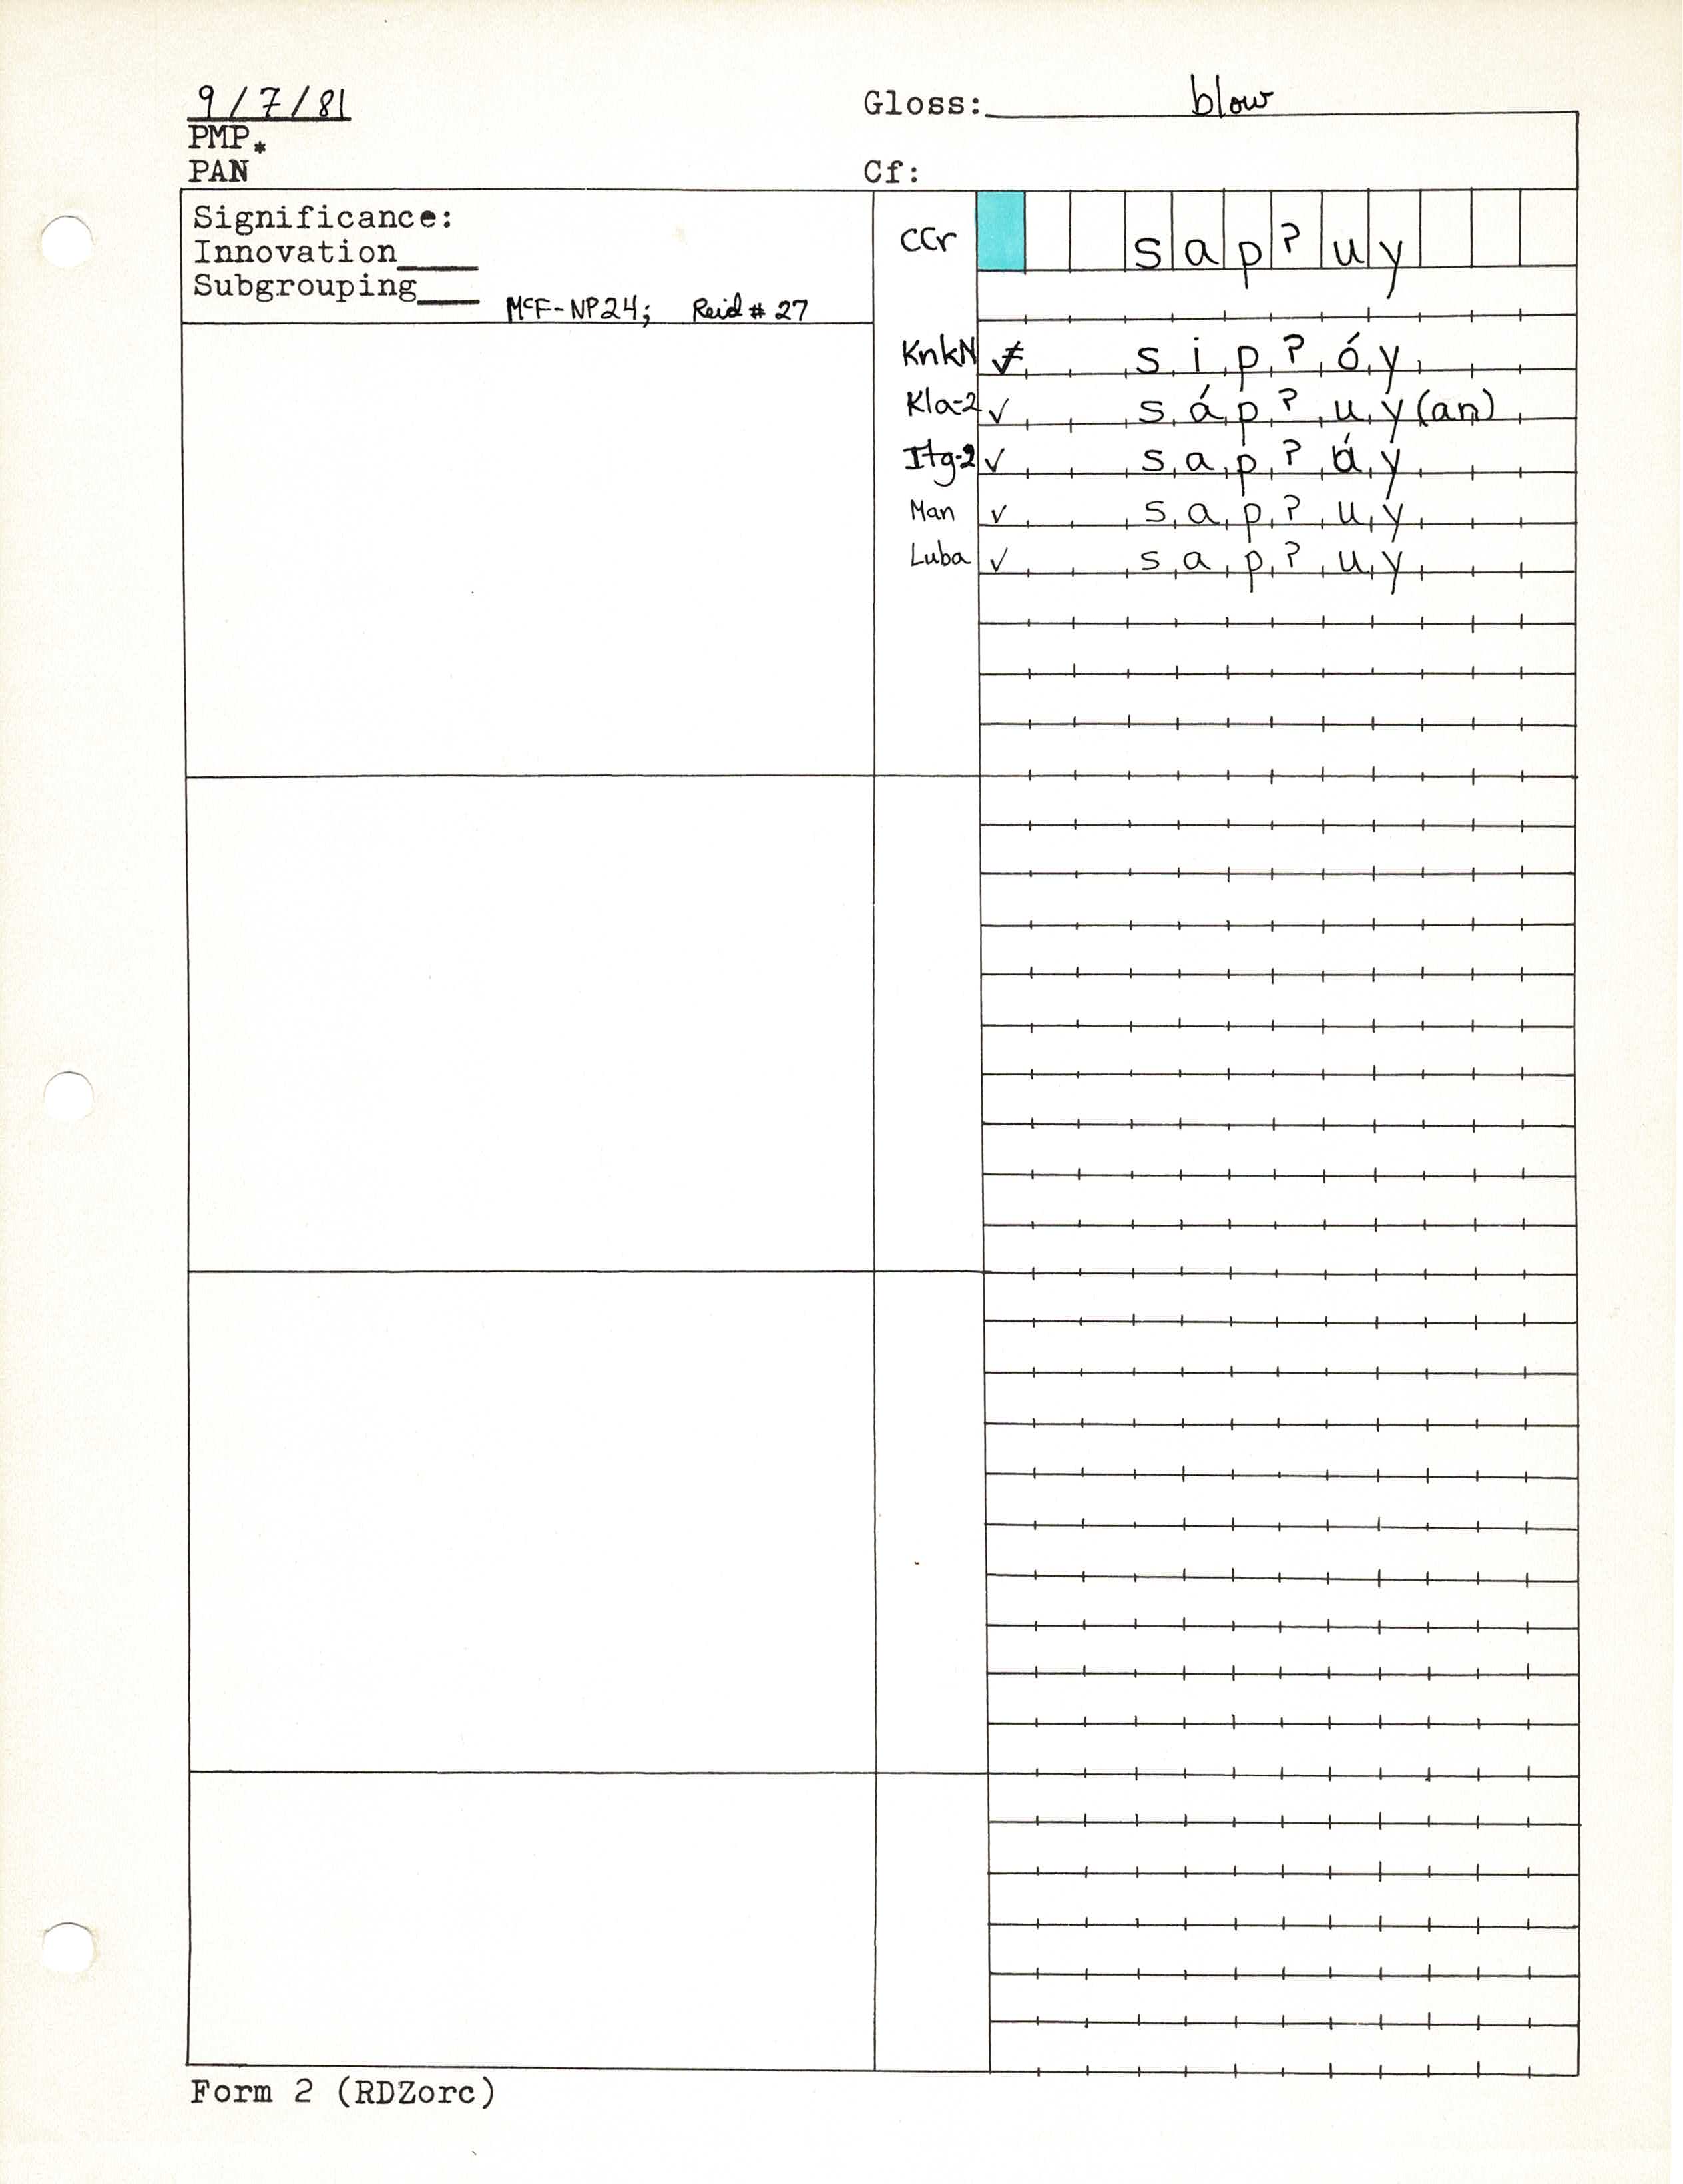 9/7/81
Gloss: blow
PMP*
PAN
Cf:
Significance:
Innovation____
Subgrouping____
McF-NP24; Reid # 27
CCr sapʔuy
KnkN ≠ sipʔóy
Kla-2 ✓ sápʔuy(an)
Itg-2 ✓ sapʔ y
Man ✓ sapʔuy
Luba ✓ sapʔuy
Form 2 (RDZorc)